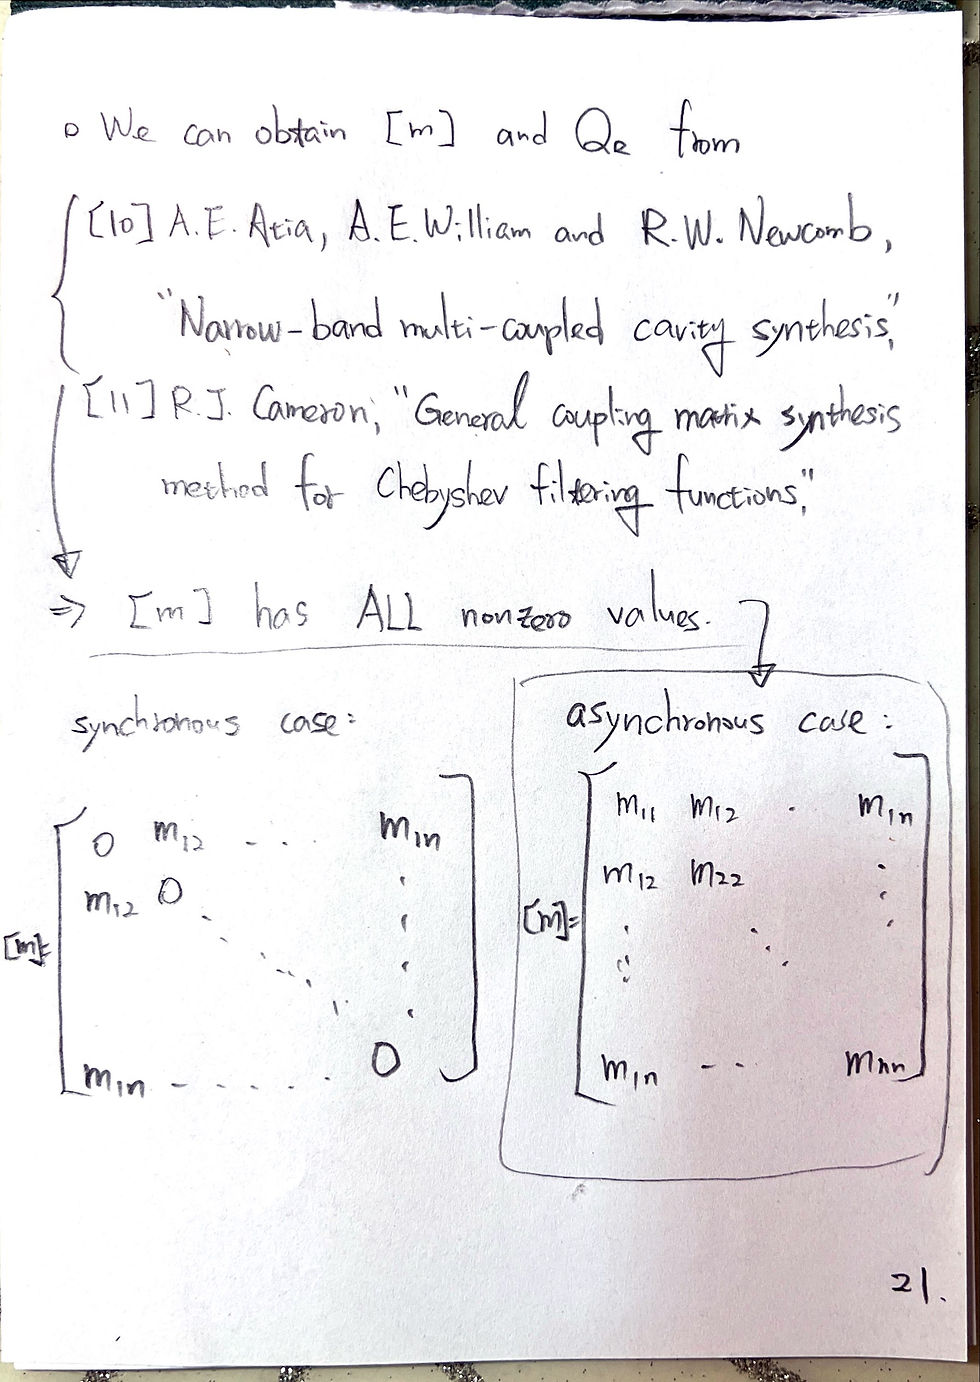 o We can obtain [m] and Qe from
[10] A.E. Atia, A.E.William and R.W. Newcomb,
"Narrow-band multi-coupled cavity synthesis,"
[11] R.J. Cameron, "General coupling matrix synthesis
method for Chebyshev filtering functions,"
⇒ [m] has ALL nonzero values.
synchronous case:
[m]=
0 m12 - . . m1n
m12 0
m1n - . . . . . 0
asynchronous case:
[m]=
m11 m12 . m1n
m12 m22
m1n - - mnn
21.